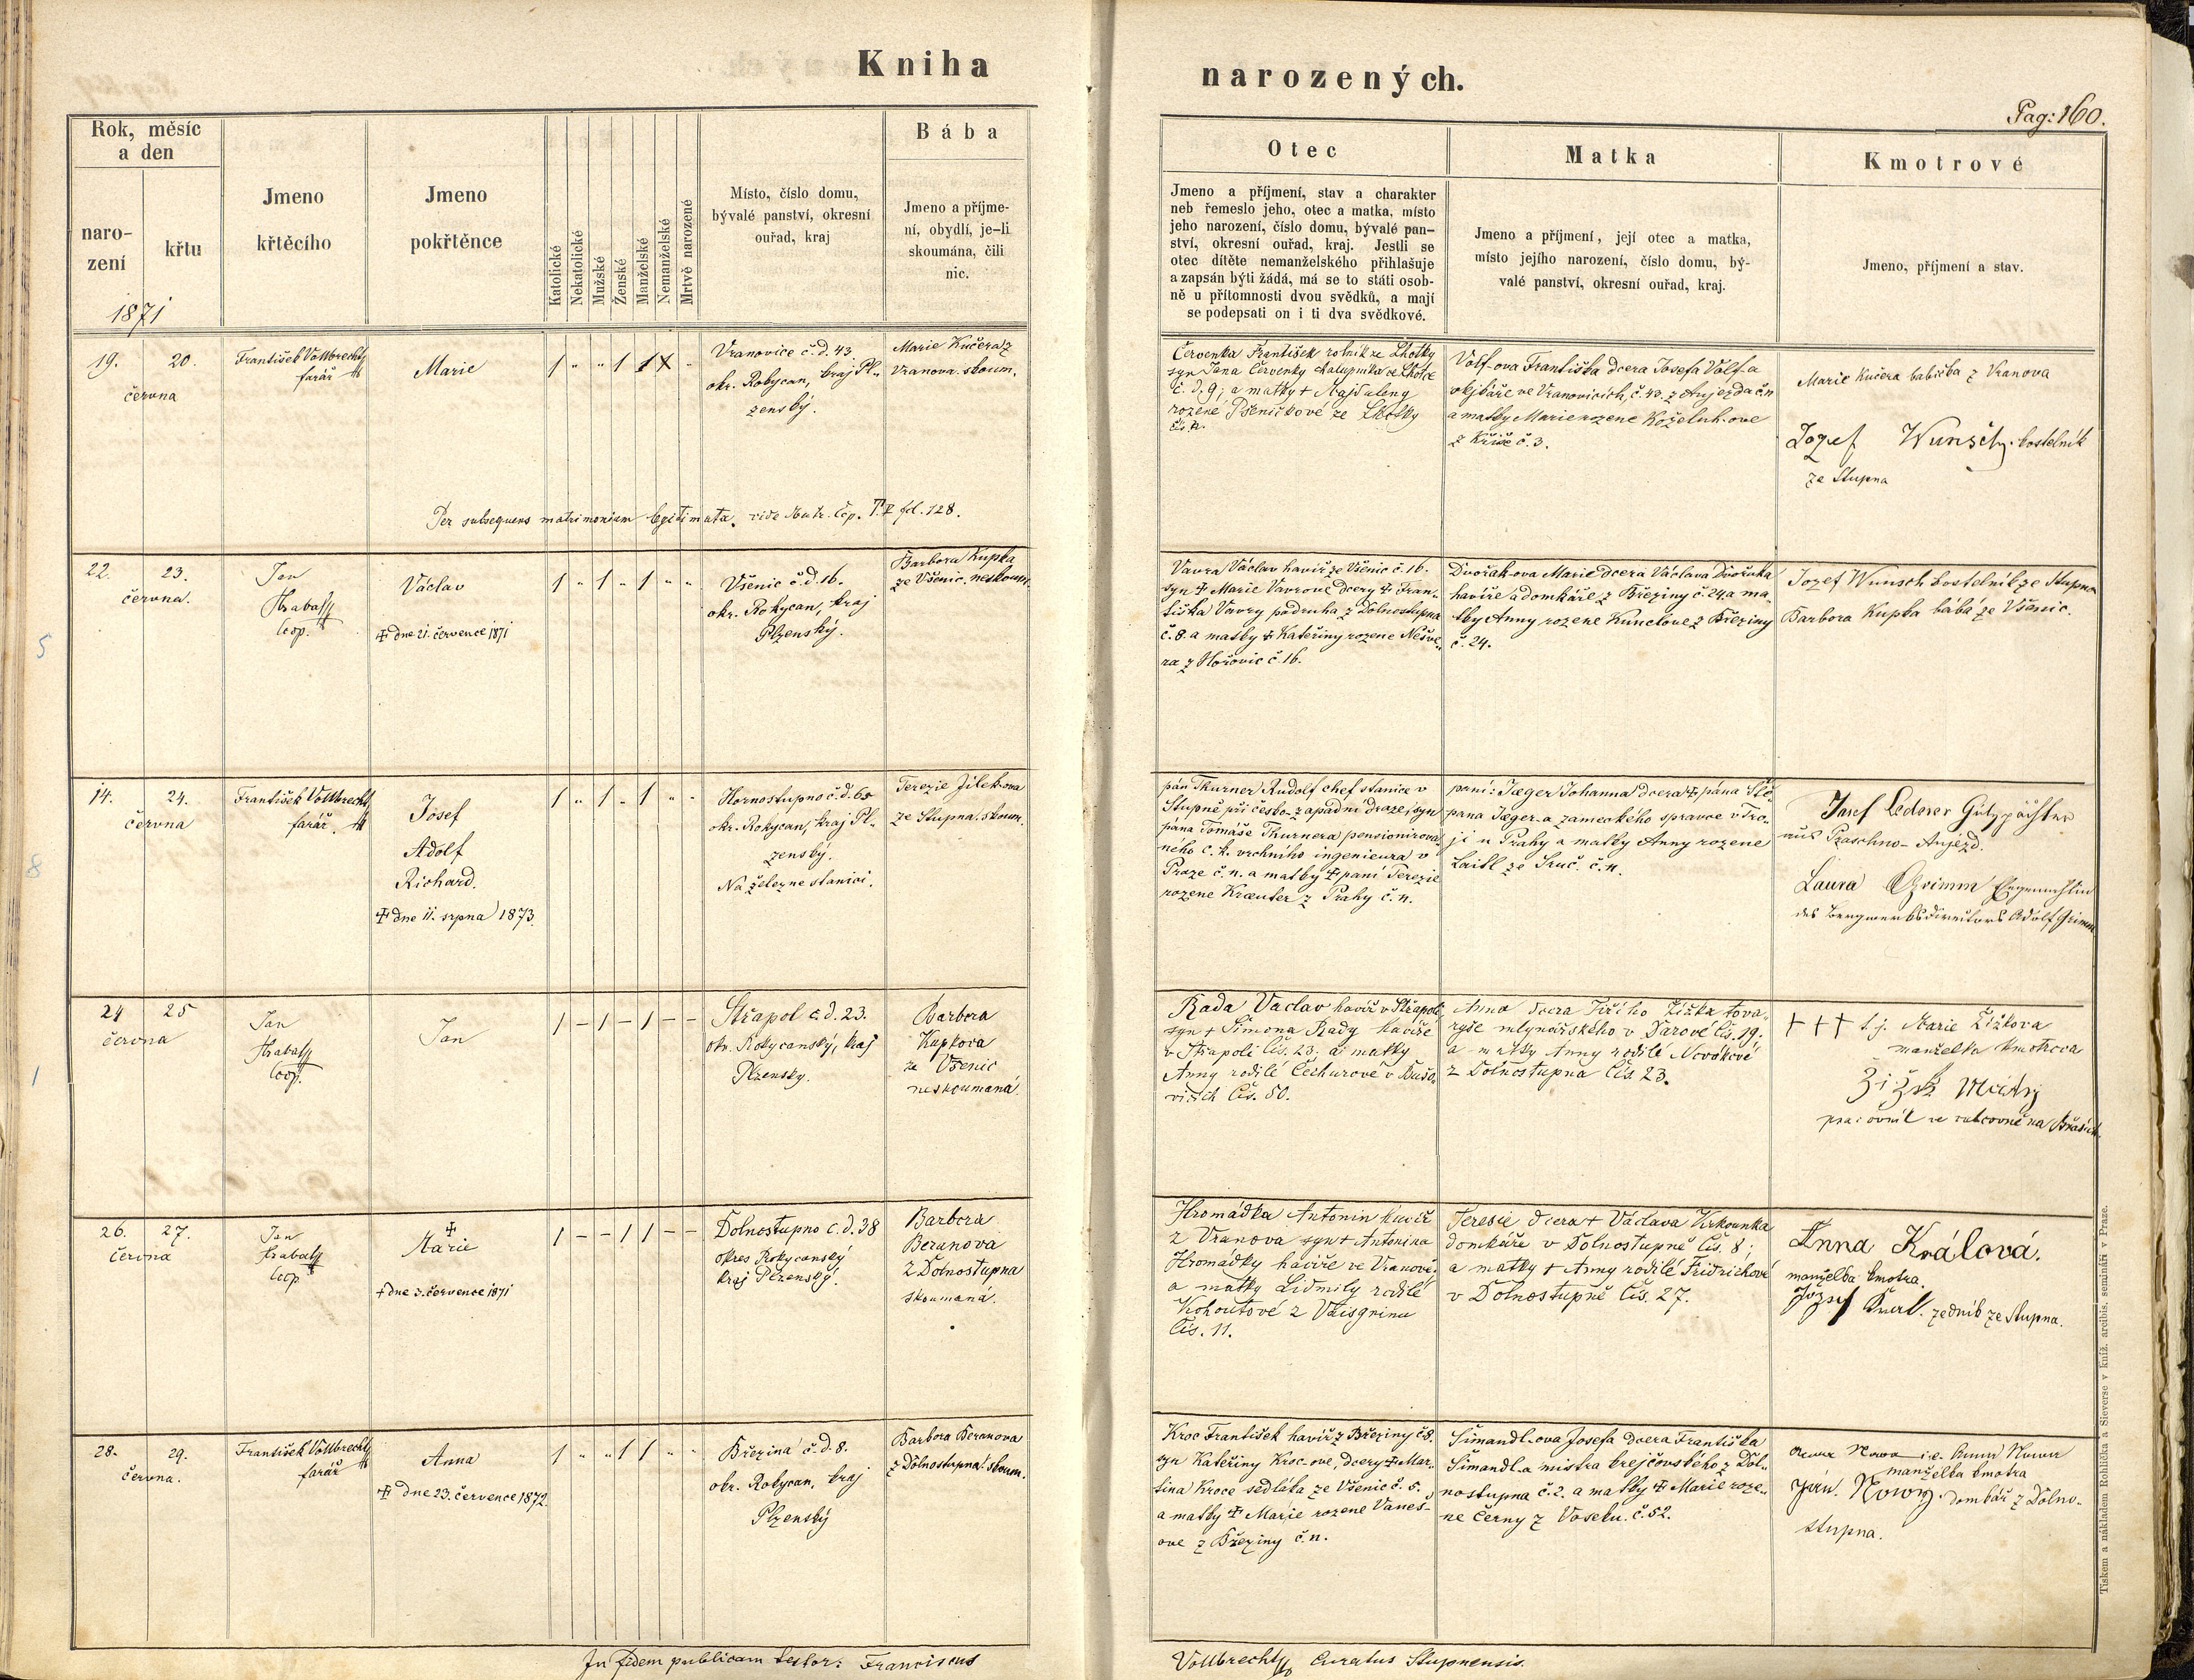 Kniha
narozených.
Pag: 160.
Rok, měsíc
a den
naro-
zení
křtu
1871
Jmeno
křtěcího
Jmeno
pokřtěnce
Katolické
Nekatolické
Mužské
Ženské
Manželské
Nemanželské
Mrtvě narozené
Místo, číslo domu,
bývalé panství, okresní
ouřad, kraj
Bába
Jmeno a příjme-
ní, obydlí, je-li
skoumána, čili
nic.
Otec
Jmeno a příjmení, stav a charakter
neb řemeslo jeho, otec a matka, místo
jeho narození, číslo domu, bývalé pan-
ství, okresní ouřad, kraj. Jestli se
otec dítěte nemanželského přihlašuje
a zapsán býti žádá, má se to státi osob-
ně u přítomnosti dvou svědků, a mají
se podepsati on i ti dva svědkové.
Matka
Jmeno a příjmení, její otec a matka,
místo jejího narození, číslo domu, bý-
valé panství, okresní ouřad, kraj.
Kmotrové
Jmeno, příjmení a stav.
19. 20.
června
František Vollbrecht
farář
Marie
Vranovice č.d. 43.
okr. Rokycan, kraj Pl-
zenský.
Marie Kučera z
Vranova skoum.
Per subsequens matrimonium legitimata, vide Matr. Cop. T. V fol. 128.
Červenka František rolník ze Lhotky
syn Jana Červenky chalupníka ze Lhotce
č. d. 9; a matky + Majdaleny
rozene Pšeničkové ze Lhotky
Volf-ova Františka dcera Josefa Volf-a
ve Vranovicích, č. 43. z Aujezda č. n
a matky Marie rozene Koželuh-ove
z Kříše č. 3.
Marie Kučera babička z Vranova
Jozef Wunsch. kostelník
ze Stupna
22. 23.
června.
Jan
Hrabal
Coop.
Václav
+ dne 21. července 1871
Všenic č.d. 16.
okr. Rokycan, kraj
Plzenský.
Barbora Kupka
ze Všenic. neskoum.
Vavra Václav havíř ze Všenic č. 16.
syn + Marie Vavrové dcery + Fran-
tiška Vavry podruha z Dolnostupna
č. 8. a matky + Kateřiny rozene Nešve-
ra z Hořovic č. 16.
Dvořakova Marie dcera Václava Dvořaka
havíře a domkáře z Březiny č. 24 a ma-
tky Anny rozene Kunclove z Březiny
č. 24.
Jozef Wunsch kostelník ze Stupna
Barbora Kupka bába ze Všenic.
5
14. 24.
června
František Vollbrecht
farář.
Josef
Adolf
Richard.
+ dne 11. srpna 1873.
Hornostupno č.d. 65
okr. Rokycan, kraj Pl-
zenský.
Na železne stanici.
Terezie Jílek-ova
ze Stupna. skoum.
pán Thurner Rudolf chef stanice v
Stupně při česko-západní draze; syn
pana Tomáše Thurnera pensionirova-
ného c. k. vrchního ingenieura v
Praze č. n. a matky + paní Terezie
rozene Kraeuter z Prahy č. n.
paní: Jaeger Johanna dcera + pána Ště-
pana Jaeger-a zameckého spravce v Tro-
ji u Prahy a matky Anny rozene
Laitl ze Sruč. č. n.
Josef Lederer Gutspächter
aus Praschno-Aujezd.
Laura Grimm Ehegemahlin
des Bergwerksdirectors Adolf Grimm
8
24 25
června
Jan
Hrabal
Coop.
Jan
Střapol č.d. 23.
okr. Rokycanský, kraj
Plzenský.
Barbora
Kupkova
ze Všenic
neskoumaná.
Rada Václav havíř v Střapoli
syn + Šimona Rady havíře
v Střapoli čís. 23; a matky
Anny rodilé Čechurové v Bušo-
vicích čís. 50.
Anna dcera Jiřího Žižka tova-
ryše mlynářského v Darové čís. 19.
a matky Anny rodilé Novákové
z Dolnostupna čís. 23.
+++ t. j. Marie Žižkova
manželka kmotrova
pracovník ve na Břasích.
1
26. 27.
června
Jan
Hrabal
Coop
+
Marie
+ dne 3. července 1871
Dolnostupno č.d. 38
okres Rokycanský
kraj Plzenský.
Barbora
Beranova
z Dolnostupna
skoumaná.
Hromádka Antonín havíř
z Vranova syn + Antonina
Hromádky havíře ve Vranově
a matky Lidmily rodilé
Kohoutové z
čís. 11.
Teresie dcera + Václava
domkáře v Dolnostupně čís. 8;
a matky + Anny rodilé Fridrichové
v Dolnostupně čís. 27.
Anna Králová.
manželka kmotra.
Jozef Kral. zedník ze Stupna.
28. 29.
června.
František Vollbrecht
farář
Anna
+ dne 23. července 1872.
Březina č.d. 8.
okr. Rokycan, kraj
Plzenský
Barbora Beranova
z Dolnostupna. skoum.
Kroc František havíř z Březiny č. 8.
syn Kateřiny Kroc-ove, dcery + Mar-
tina Kroce sedláka ze Všenic č. 5.
a matky + Marie rozene Vaneš-
ove z Březiny č. n.
Šimandl-ova Josefa dcera Františka
Šimandl-a mistra krejčovského z Dol-
nostupna č. 2. a matky + Marie roze-
ne Černy z Voseku. č. 52.
Anna Nowa i. e. Anna Nowa
manželka kmotra
Jan. Nowy. domkář z Dolno-
stupna.
In fidem publicam testor: Franciscus
Vollbrecht Curatus Stupnensis.
Tiskem a nákladem Rohlíčka a Sieverse v kníž. arcibis. semináři v Praze.